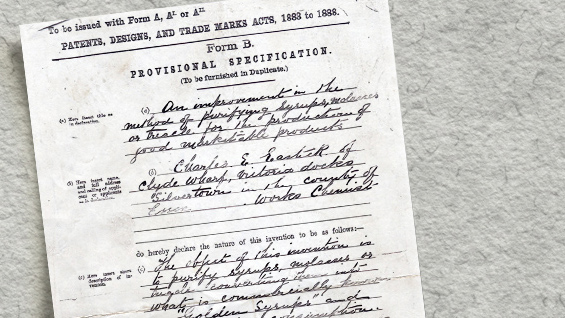 To be issued with Form A, A¹ or A¹¹.
PATENTS, DESIGNS, AND TRADE MARKS ACTS, 1883 to 1888.
Form B.
PROVISIONAL SPECIFICATION.
(To be furnished in Duplicate.)
(a) Here insert title as in declaration.
(a) An improvement in the
method of purifying syrups, molasses
or treacle for the production of
good marketable products
(b) Here insert name, and full address and calling of
(b) Charles E. Eastick of
Clyde Wharf, Victoria docks
Silvertown in the county of
Essex Works Chemist
do hereby declare the nature of this invention to be as follows:—
(c) Here insert
(c) The object of this invention is
to purify syrups, molasses or
treacle converting them into
what is commercially known
"Golden Syrups" and